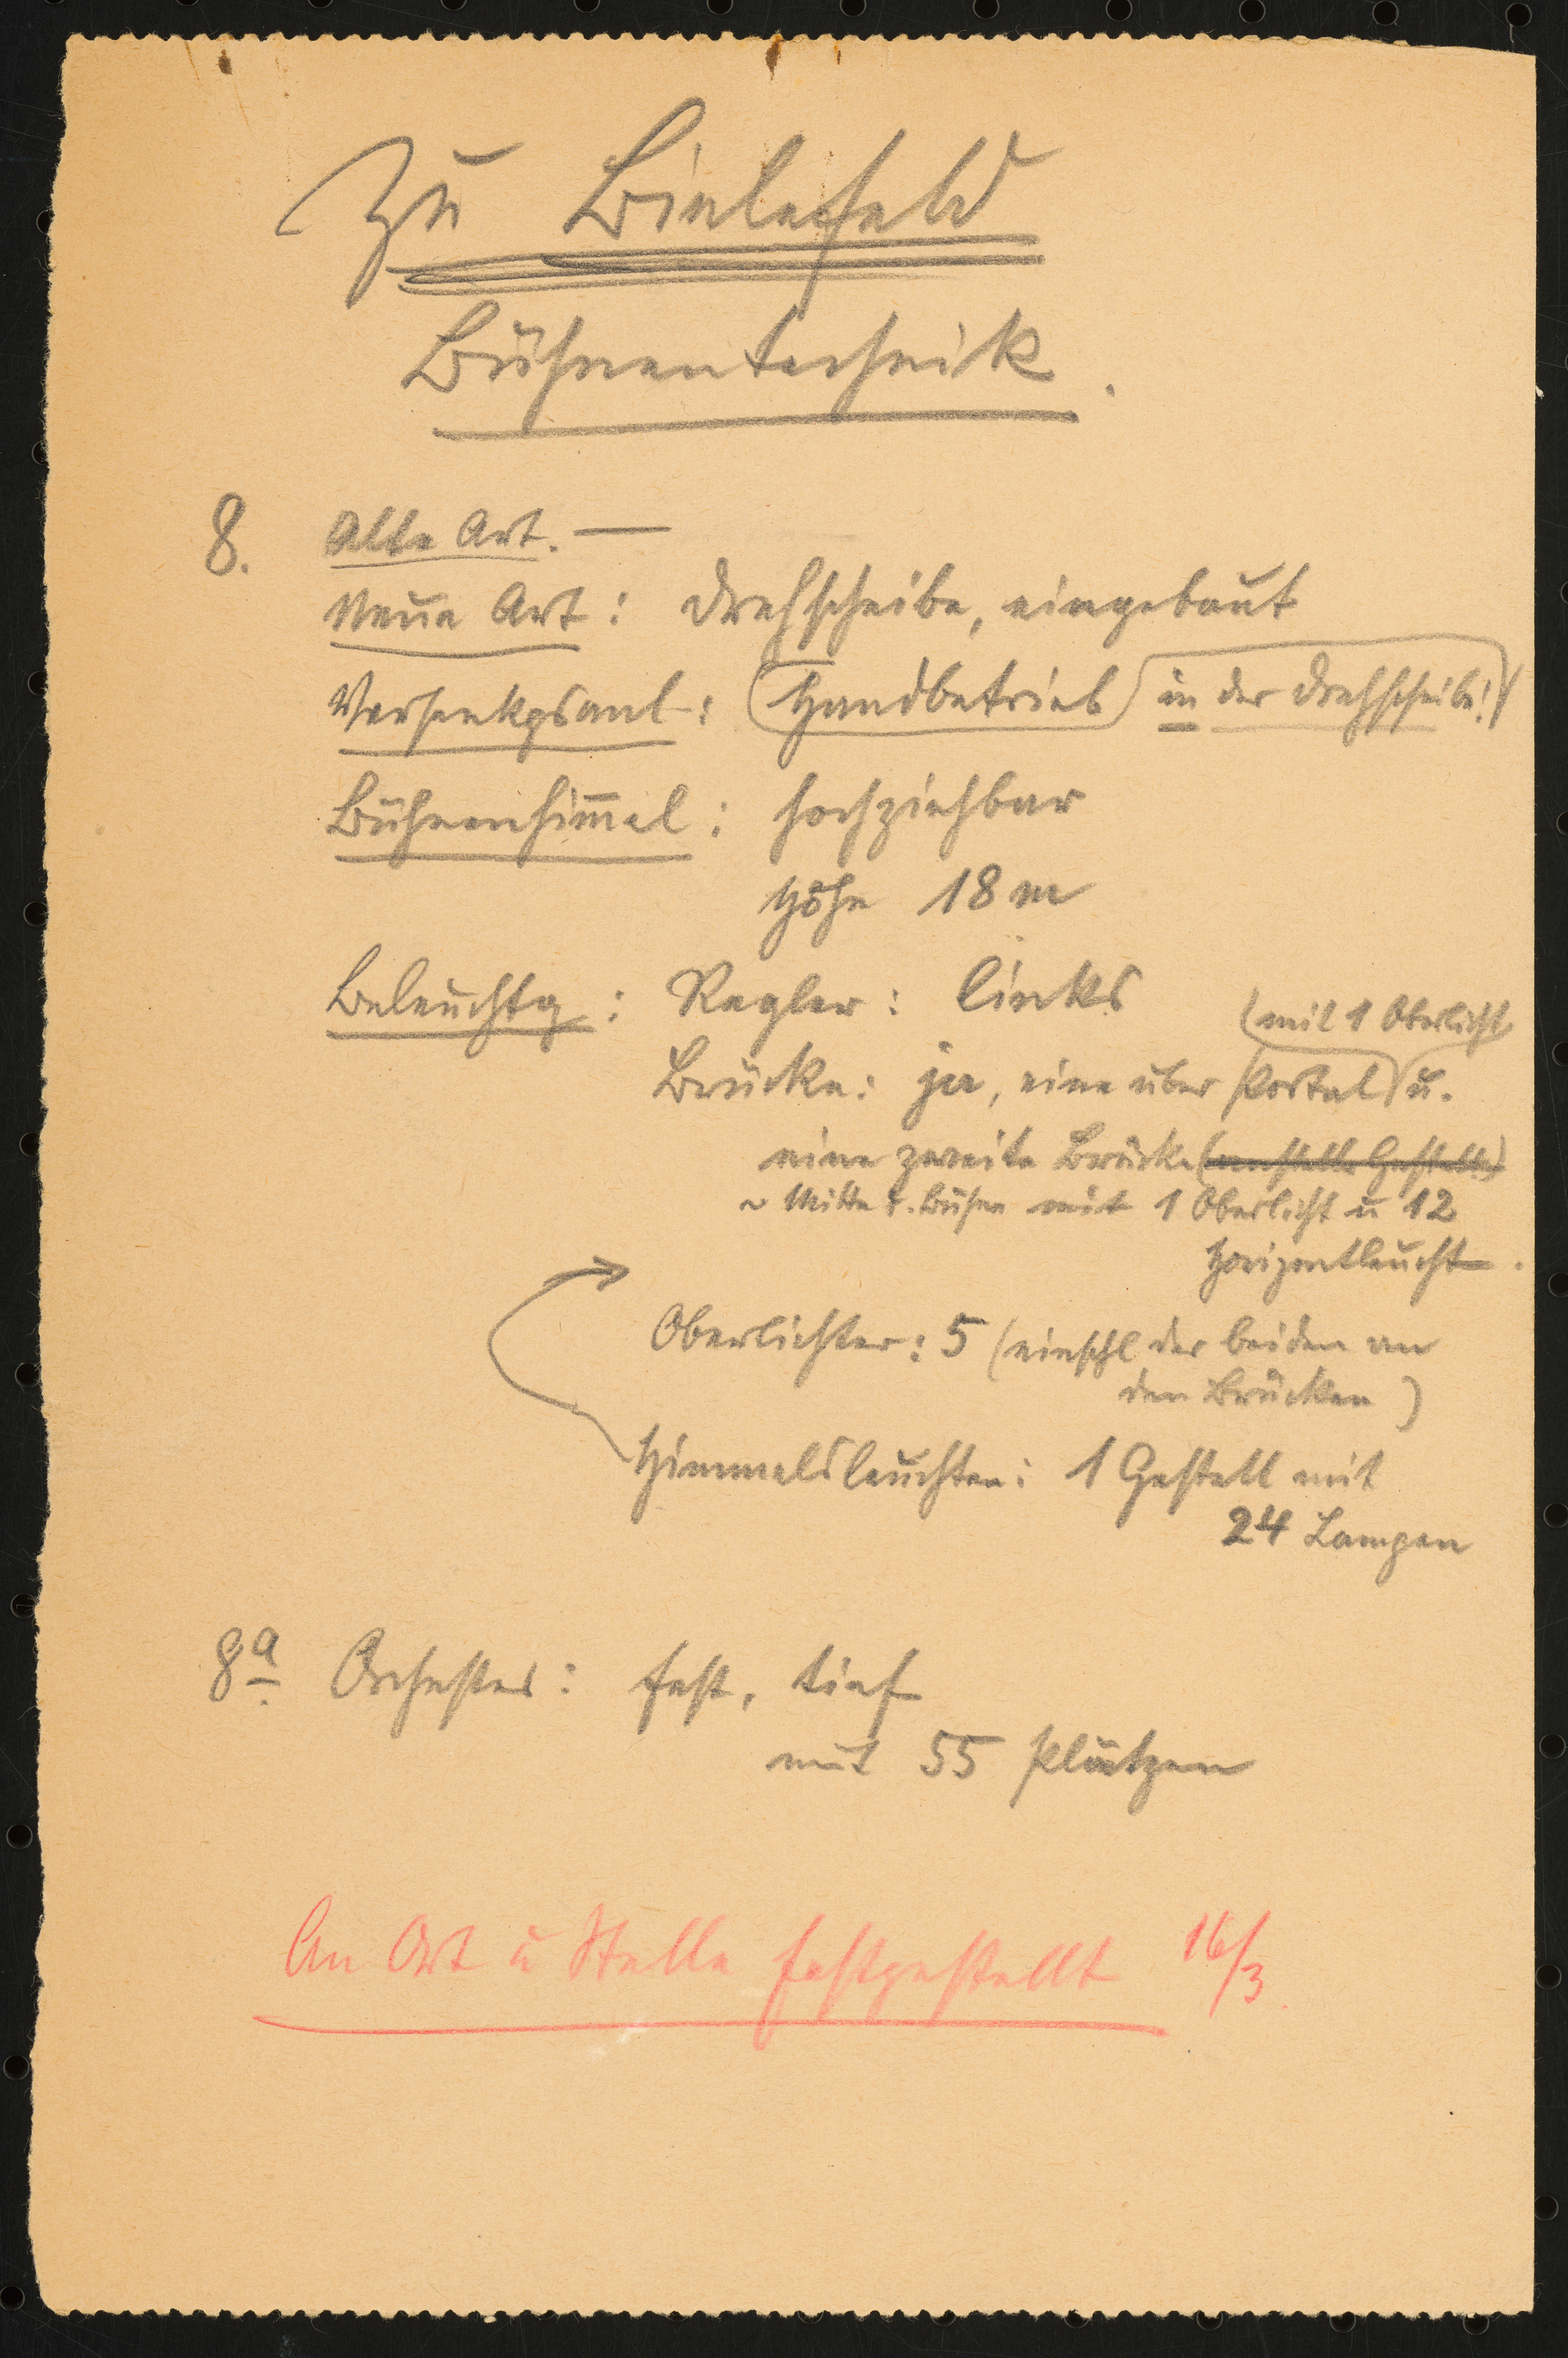 Zu Bielefeld
Bühnentechnik.
8. Alte Art. —
Neue Art: Drehscheibe, eingebaut
Versenkgsanl.: Handbetrieb in der Drehscheibe!
Bühnenhim̅el: hochziehbar
Höhe 18 m
Beleuchtg: Regler: links
(mit 1 Oberlicht
Brücke: ja, eine über Portal) u.
eine zweite Brücke (anstelle Gestells)
~ Mitte d. Bühne mit 1 Oberlicht u 12
Horizontleucht.
Oberlichter: 5 (einschl der beiden an
den Brücken)
Himmelsleuchten: 1 Gestell mit
24 Lampen
8a. Orchester: fest, tief
mit 55 Plätzen
An Ort u Stelle festgestellt 16/3.